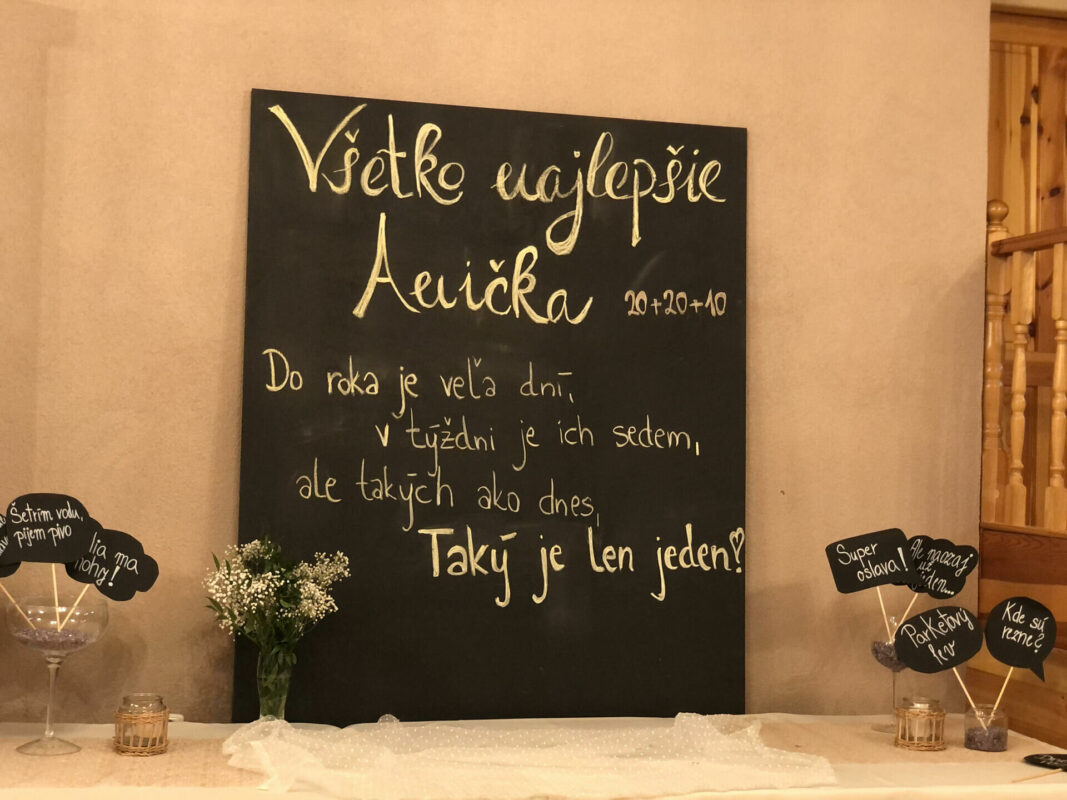 Všetko najlepšie
Anička 20+20+10
Do roka je veľa dní,
v týždni je ich sedem,
ale takých ako dnes,
Taký je len jeden!
Šetrím vodu,
pijem pivo
lia ma
nohy!
Super
oslava!
naozaj
už
Parketový
lev
Kde sú
rezne?